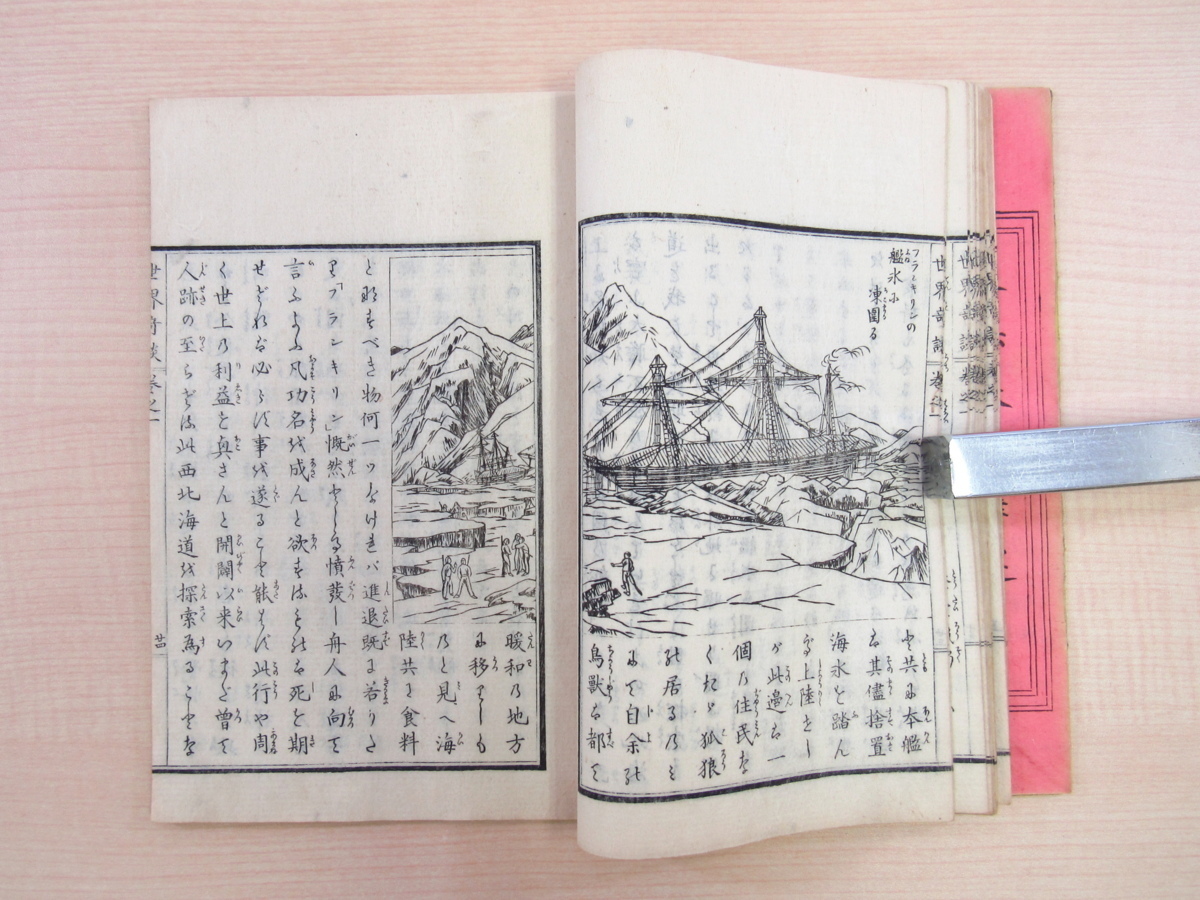 フランキリンの
艦氷に
凍圍る
と共に本艦
は其儘捨置
海氷を踏ん
で上陸せし
が此邊は一
個の住民な
くただ狐狼
の居るのみ
にて自余の
鳥獣は都て
暖和の地方
に移りしも
のと見へ海
陸共に食料
と為すべき物何一ツなければ進退既に若りた
り「フランキリン」慨然として憤發し舟人に向て
言ふよふ凡功名を成んと欲するものは死を期
せざれば必らず事を遂ること能はず此行や周
く世上の利益を興さんと開闢以来いまだ曽て
人跡の至らざる此西北海道を探索為ることな
世界奇談 巻之一
廿四